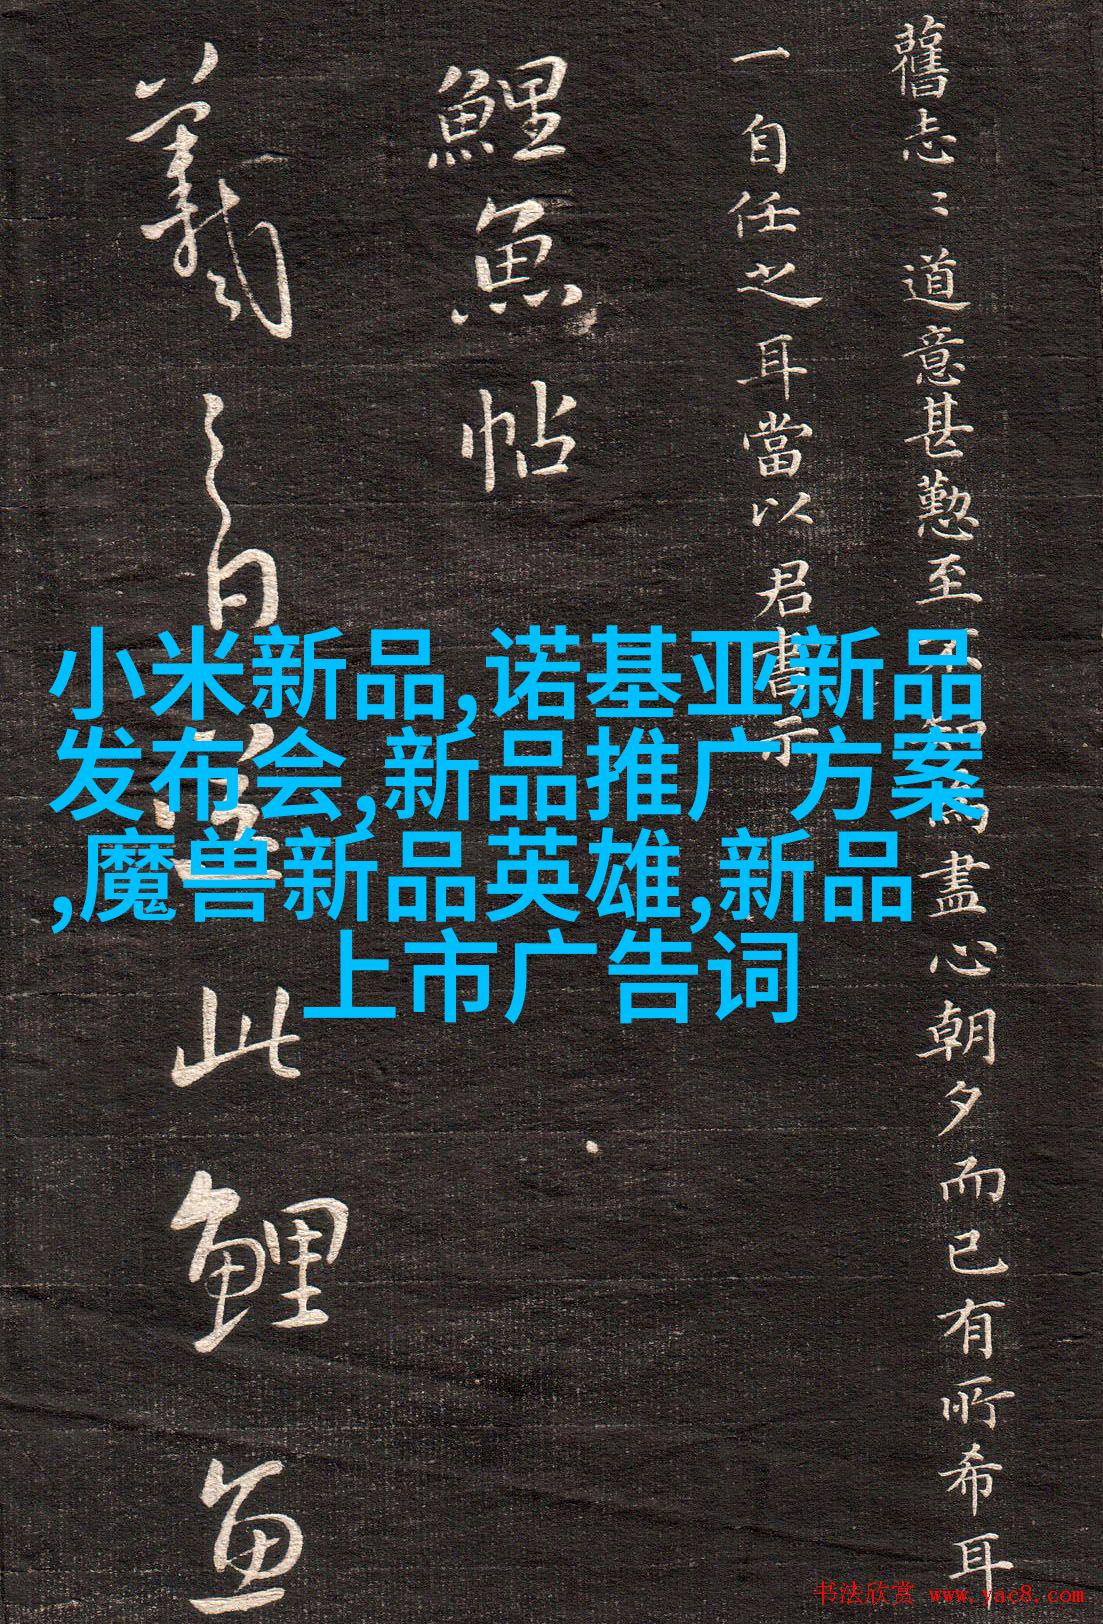 舊志〻道意甚懃至不知為盡心朝夕而已有所希耳
一自任之耳當以君書示
鯉魚帖
羲之白
此鯉魚
小米新品,诺基亚新品
发布会,新品推广方案
,魔兽新品英雄,新品
上市广告词
书法欣赏 www.yac8.com